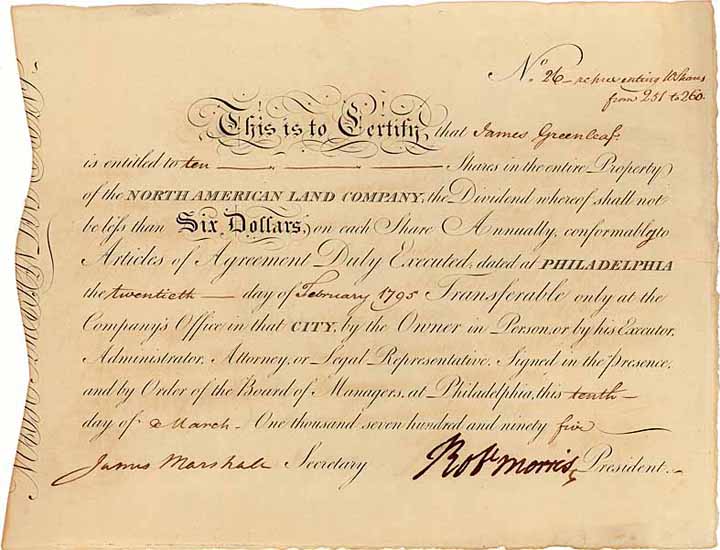 No. 26 - representing 10 Shares
from 251 to 260.
This is to Certify, that James Greenleaf
is entitled to ten Shares in the entire Property
of the NORTH AMERICAN LAND COMPANY, the Dividend whereof shall not
be leſs than Six Dollars, on each Share Annually, conformably to
Articles of Agreement Duly Executed; dated at PHILADELPHIA
the twentieth day of February 1795 Transferable only at the
Company's Office in that CITY, by the Owner in Person, or by his Executor,
Administrator, Attorney, or Legal Representative. Signed in the Presence,
and by Order of the Board of Managers, at Philadelphia, this tenth
day of March - One thousand seven hundred and ninety five
James Marshall Secretary Robt Morris President.